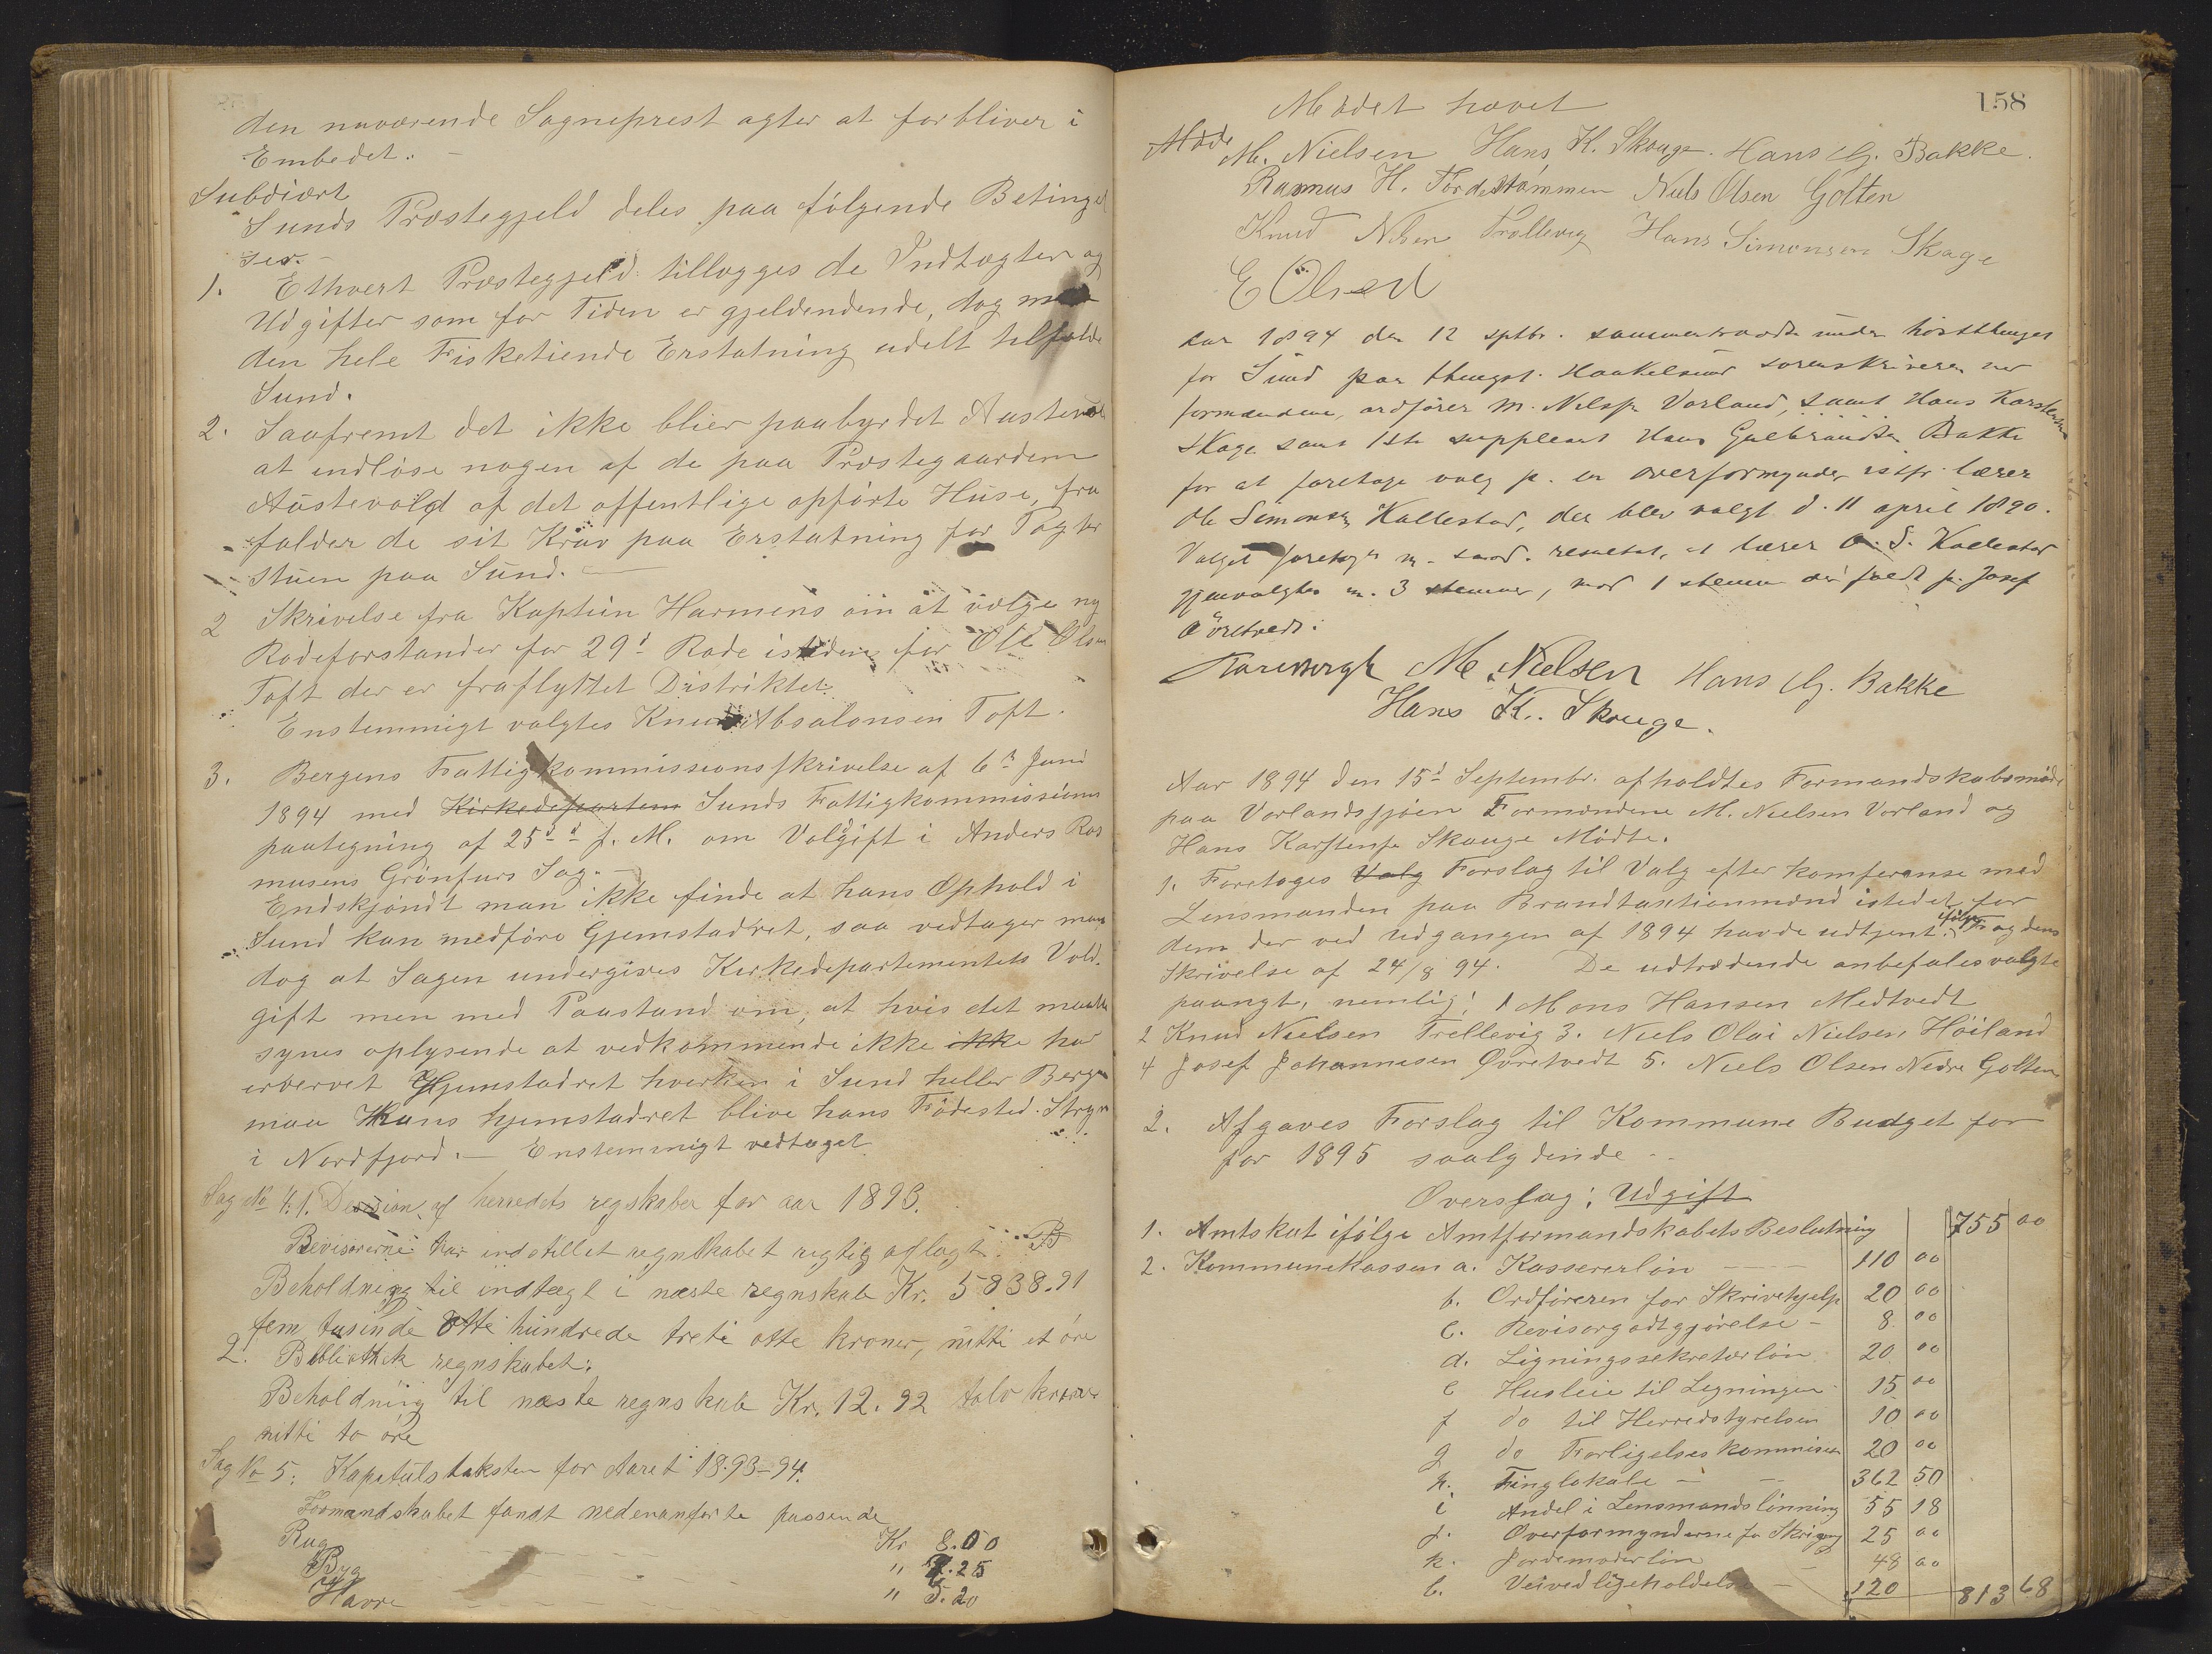 den nuværende Sogneprest agter at forbliver i
Embedet. –
Subdiært
Sunds Præstegjeld deles paa følgende Betingel
ser. –
1. Ethvert Præstegjeld tillægges de Indtægter og
Udgifter som for Tiden er gjeldendende, dog maa
den hele Fisketiende Erstatning udelt tilfalde
Sund.
2. Saafremt det ikke blier paabyrdet Austevold
at indløse nogen af de paa Præstegaarden
Austevold af det offentlige opførte Huse, fra
falder de sit Krav paa Erstatning for Pagter
stuen paa Sund. —
2 Skrivelse fra Kaptein Harmens om at vælge ny
Rodeforstander for 29d Rode istedene for Ole Olsen
Toft der er fraflyttet Distriktet.
Enstemmigt valgtes Knud Absalonsen Toft.
3. Bergens Fattigkommissions skrivelse af 6te Juni
1894 med Kirkedepartem Sunds Fattigkommissions
paategning af 25de f. M. om Voldgift i Anders Ras
musens Grönfurs Sag. –
Endskjøndt man ikke finde at hans Ophold i
Sund kan medføre Hjemstadret, saa vedtager man
dog at Sagen undergives Kirkedepartementets Vold.
gift men med Paastand om, at hvis det maatte
synes oplysende at vedkommende ikke ikke har
erbervet Hjemstadret hverken i Sund heller Bergen
maa Hans hjemstadret blive hans Fødested. Stryn
i Nordfjord. — Enstemmigt vedtaget
Sag No 4: 1. Desision af herredets regnskaber for aar 1893.
Revisorerne har indstillet regnskabet rigtig aflagt.
Beholdning til indtægt i næste regnskab Kr. 5838.91
fem tusinde otte hundrede treti otte kroner, nitti et øre
2. Bibliothek regnskabet:
Beholdning til næste regnskab Kr. 12.92 tolv kroner
nitti to øre
Sag No 5: Kapitulstaksten for Aaret 1893–94.
Formandskabet fandt nedenanførte passende
Rug Kr 8.00
Byg " 7.25
Havre " 5.20
158
Mødet hævet
Møde
M. Nielsen Hans K. Skouge. Hans G. Bakke.
Rasmus H. Tördestömmen Niels Olsen Golten
Knud Nilsen Trollevig Hans Simonsen Skage
E Olsen
Aar 1894 den 12 sptbr. sammentraadte under høstthinget
for Sund paa thingst. Haakelsund sorenskriveren
formændene, ordfører M. Nilsen Vorland, samt Hans Karstensen
Skage samt 1ste suppleant Hans Gulbrandsen Bakke
for at foretage valg p. en overformynder istf. lærer
Ole Simonsen Kallestad, der blev valgt d. 11 april 1890.
Valget foretoges m. saad. resultat, at lærer O. S. Kallestad
gjenvalgtes m. 3 stemmer, mod 1 stemme der faldt p. Josef
Øvretvedt.
M Nielsen Hans G. Bakke
Hans K. Skouge.
Aar 1894 den 15d Septembr. afholdtes Formandskabsmøde
paa Vorlandssjøen Formændene M. Nielsen Vorland og
Hans Karstensen Skauge Mødte.
1. Foretoges Valg Forslag til Valg efter komferanse med
Lensmanden paa Brandtaxtionmænd istedet for
dem der ved udgangen af 1894 havde udtjent. ifølge Fogdens
Skrivelse af 24/8 94. De udtrædende anbefales valgte
paanyt, nemlig: 1 Mons Hansen Midtvedt
2 Knud Nielsen Trellevig 3. Niels Olai Nielsen Høiland
4 Josef Johannesen Øvretvedt 5. Niels Olsen Nedre Golten
2. Afgaves Forslag til Kommune Budget for
for 1895 saalydende –
Overslag: Udgift
1. Amtskat ifølge Amtformandskabets Beslutning 755 00
2. Kommunekassen a. Kassererløn — — 110 00
b. Ordføreren for Skrivehjelp 20 00
c. Revisorgodtgjørelse – 8 00
d. Ligningssekretærløn 20 00
e Husleie til Ligningen 15 00
f do til Herredstyrelsen 10 00
g do Forligelseskommision 20 00
h. Tinglokale — — 362 50
i Andel i Lensmandslønning 55 18
j. Overformynderne for Skrivning 25 00
k. Jordemoderløn – 48 00
l. Veivedligeholdelse – 120 — 813 68